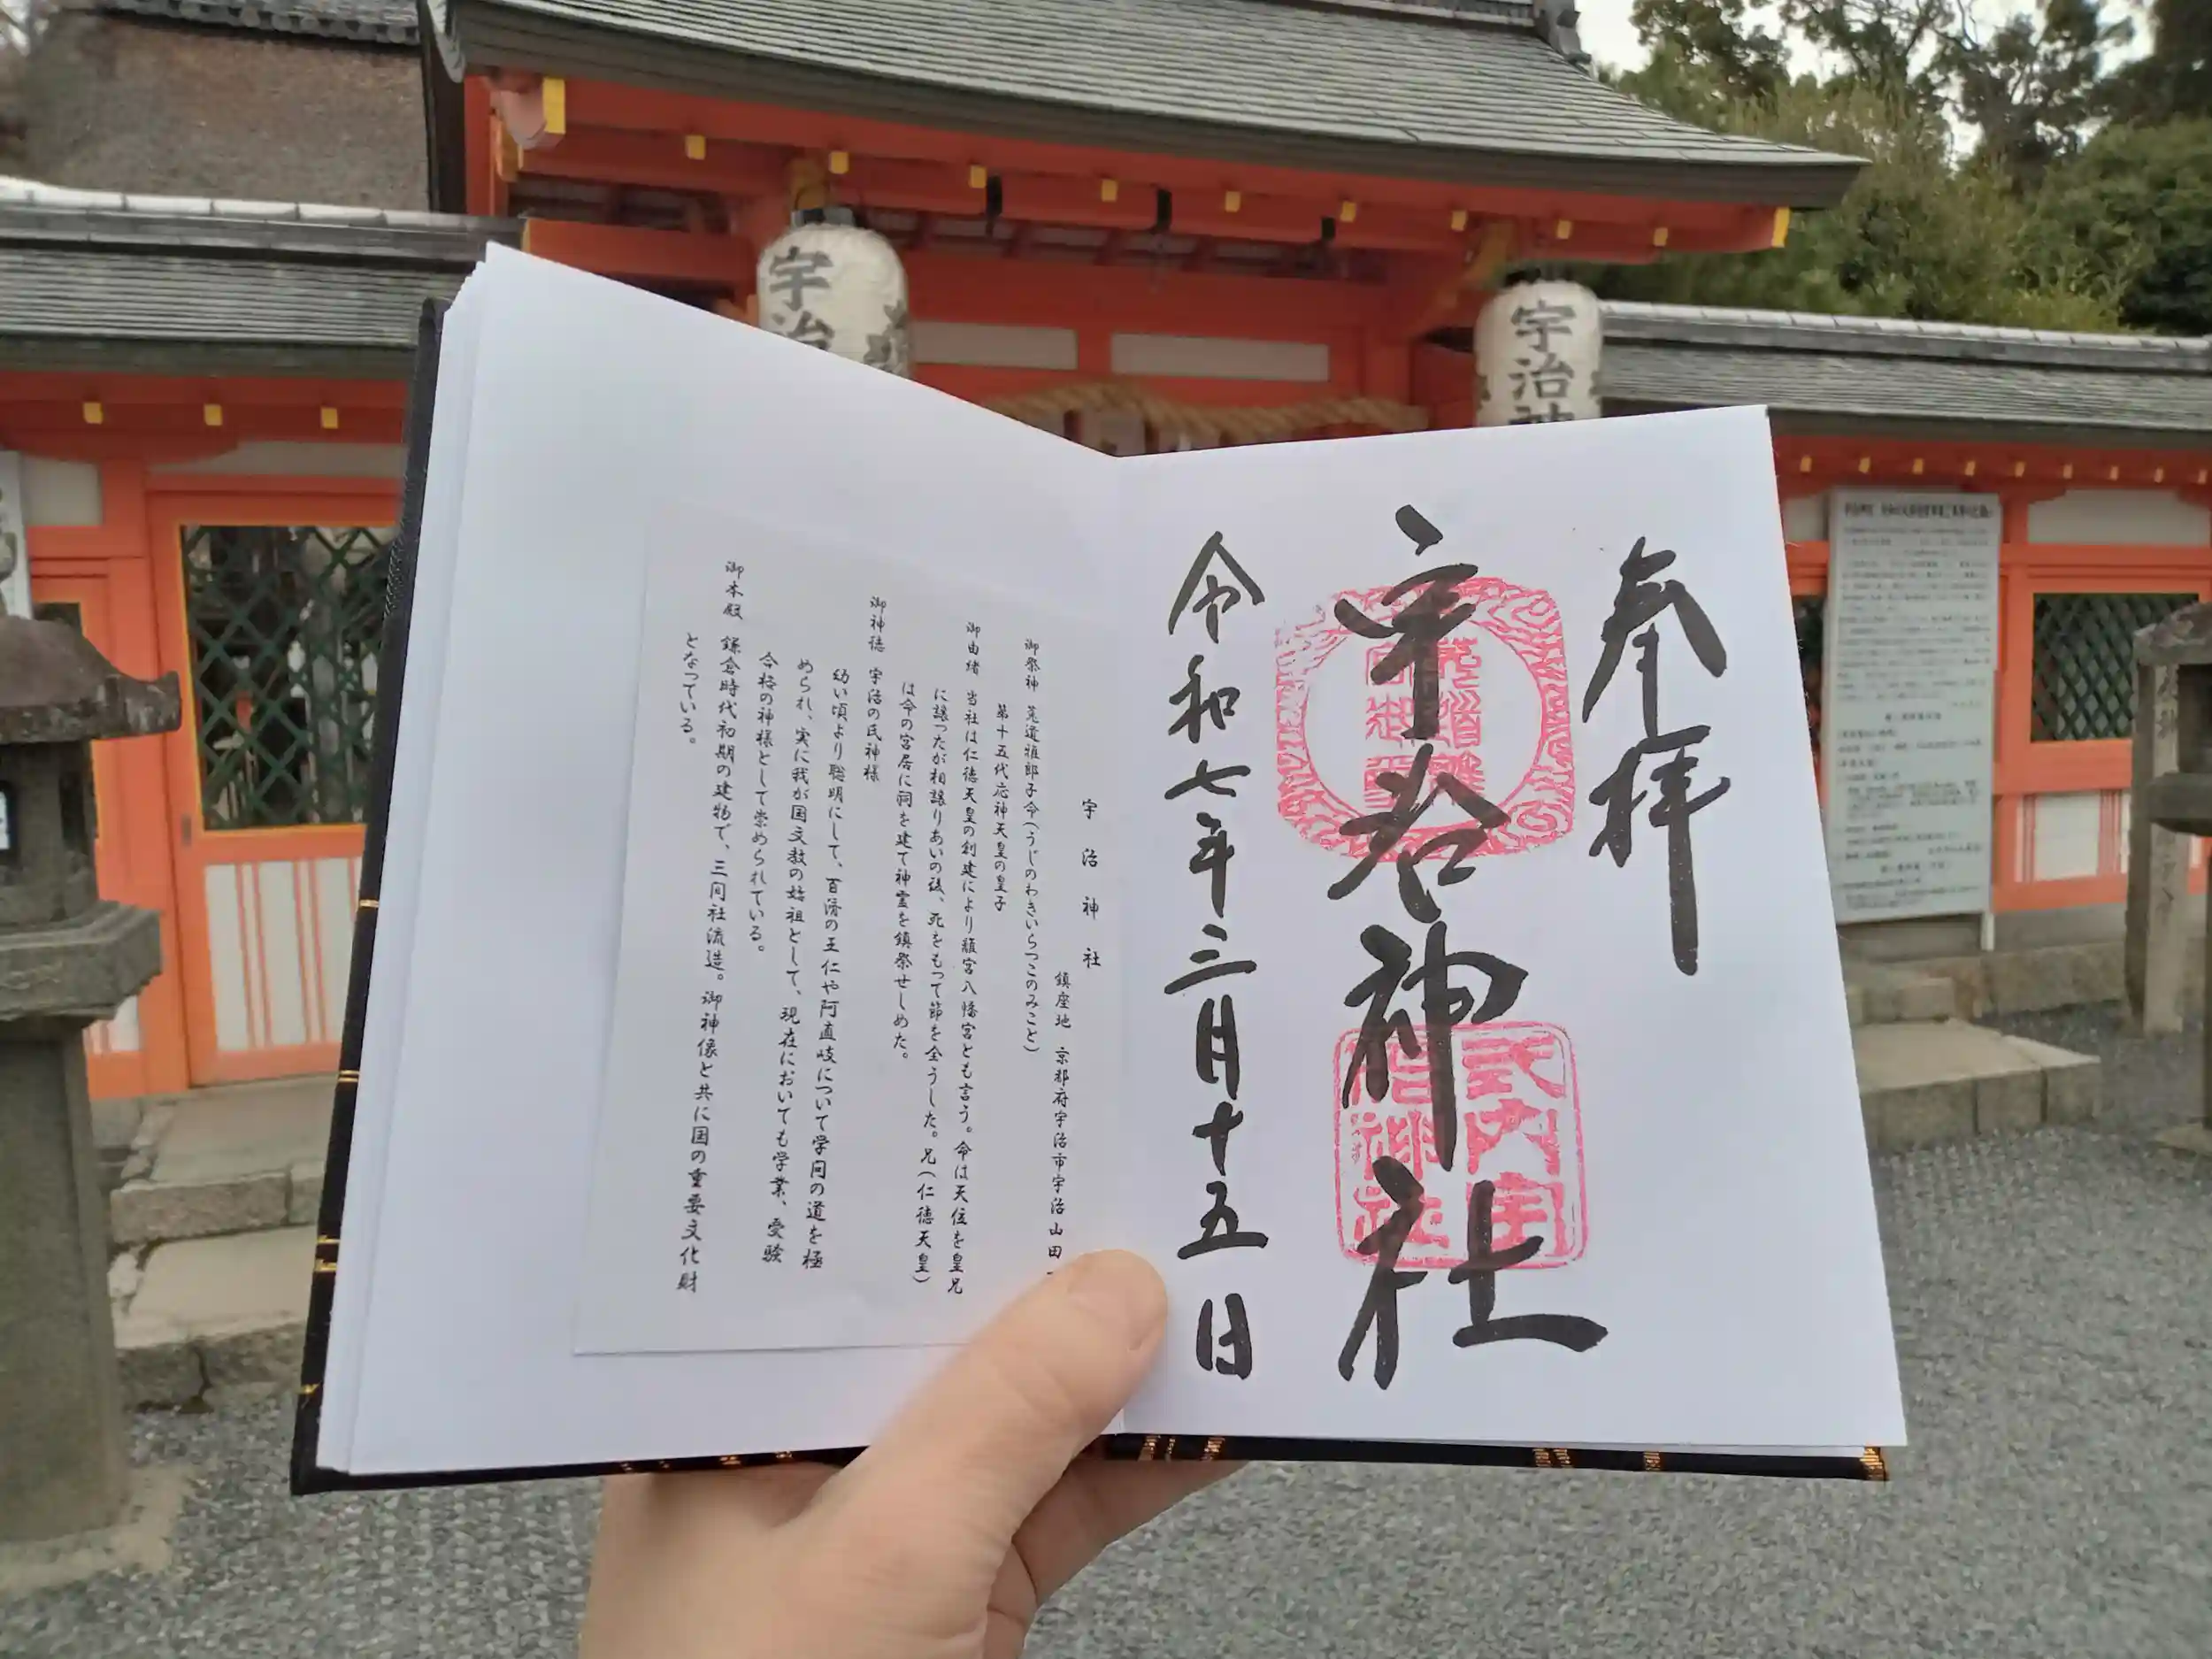 奉拝
宇治神社
式内宇
治神社
令和七年三月十五日
宇治神社
鎮座地 京都府宇治市宇治山田
御祭神 菟道稚郎子命(うじのわきいらつこのみこと)
第十五代応神天皇の皇子
御由緒 当社は仁徳天皇の創建により離宮八幡宮とも言う。命は天位を皇兄
に譲ったが相譲りあいの後、死をもって節を全うした。兄(仁徳天皇)
は命の宮居に祠を建て神霊を鎮祭せしめた。
御神徳 宇治の氏神様
幼い頃より聡明にして、百済の王仁や阿直岐について学問の道を極
められ、実に我が国文教の始祖として、現在においても学業、受験
合格の神様として崇められている。
御本殿 鎌倉時代初期の建物で、三間社流造。御神像と共に国の重要文化財
となっている。
宇治
宇治神